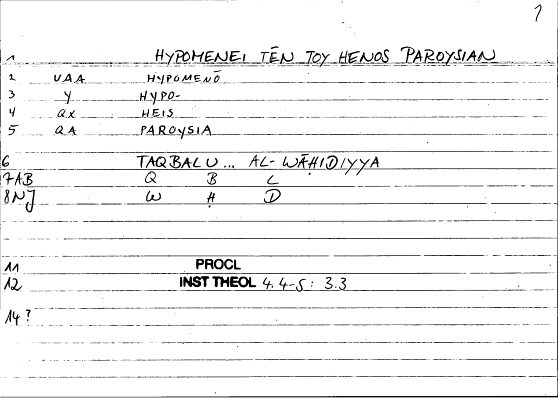 7
1 HYPOMENEI TĒN TOY HENOS PAROYSIAN
2 VAA HYPOMENŌ
3 Y HYPO-
4 QX HEIS
5 QA PAROYSIA
6 TAQBALU... AL-WĀḤIDIYYA
7AB Q B L
8NJ W Ḥ D
11 PROCL
12 INST THEOL 4.4-5: 3.3
14?